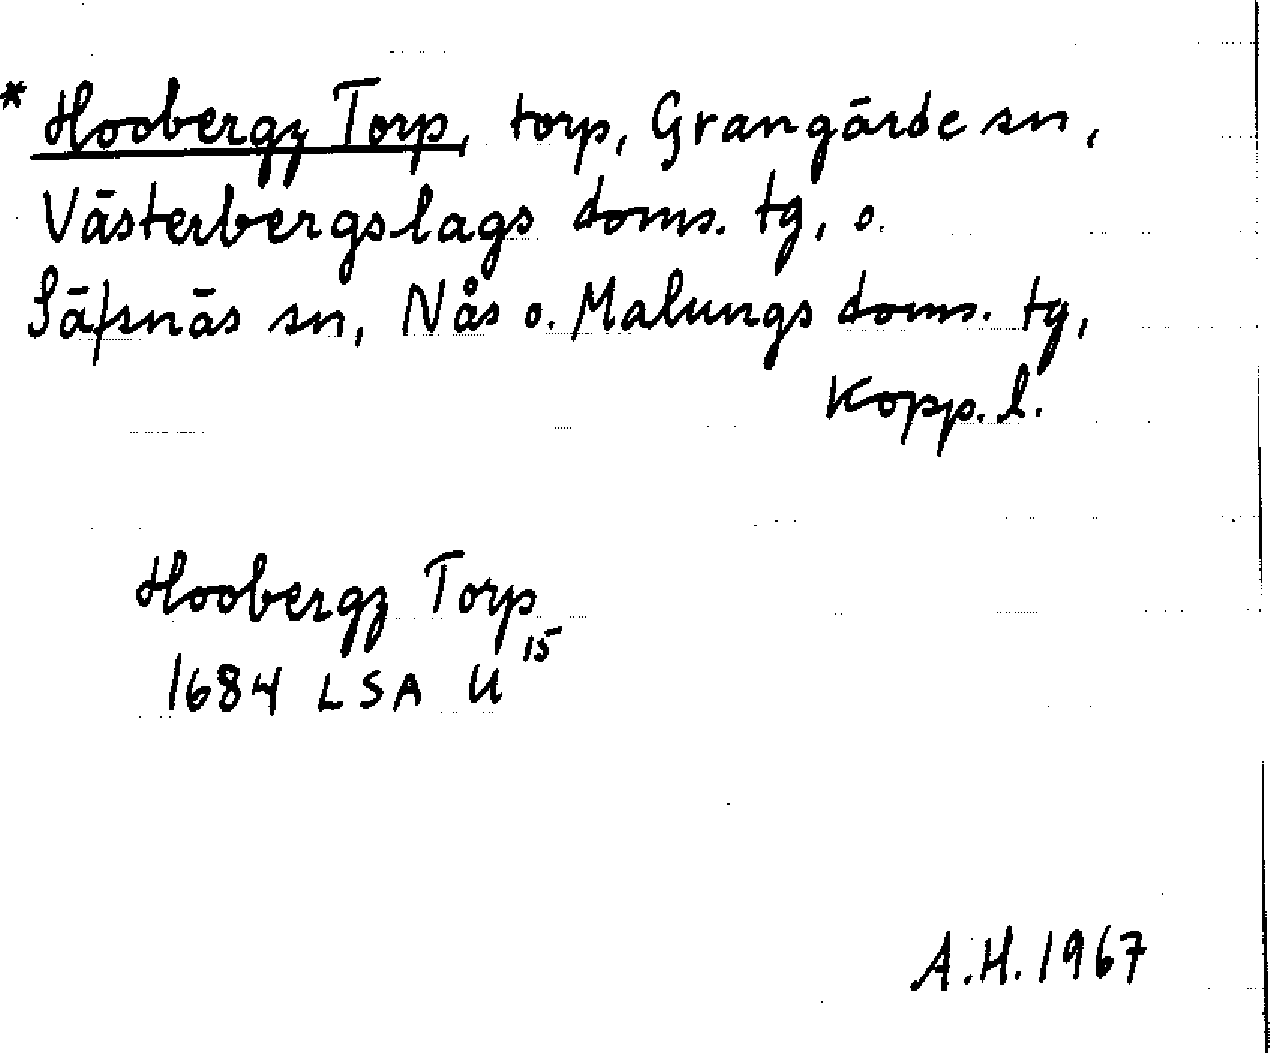 * Hoobergz Torp, torp, Grangärde sn,
Västerbergslags doms. tg, o.
Säfsnäs sn, Nås o. Malungs doms. tg,
Kopp. l.
Hoobergz Torp
1684 LSA U 15
A.H. 1967